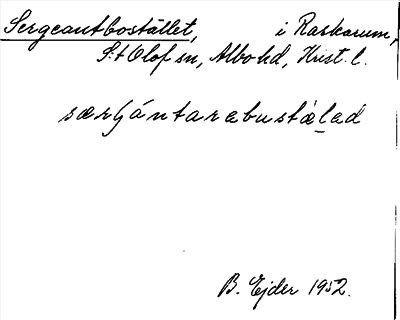 Sergeantbostället, i Raskarum,
S:t Olof sn, Albo hd, Krist. l.
særjántarebustæ̀lled
B. Ejder 1952.